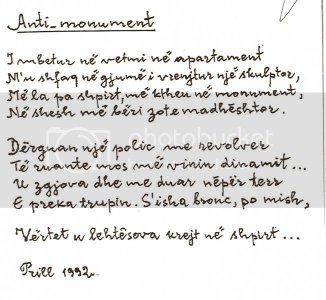 Anti-monument
I mbetur në vetmi në apartament
M'u shfaq në gjumë i vrenjtur një skulptor,
Më la pa shpirt, më ktheu në monument,
Në shesh më bëri zot e madhështor.
Dërguan një polic me revolver
Të ruante mos më vinin dinamit...
U zgjova dhe me duar nëpër terr
E preka trupin. S'isha bronc, po mish,
Vërtet u lehtësova krejt në shpirt...
Prill 1992
photobucket